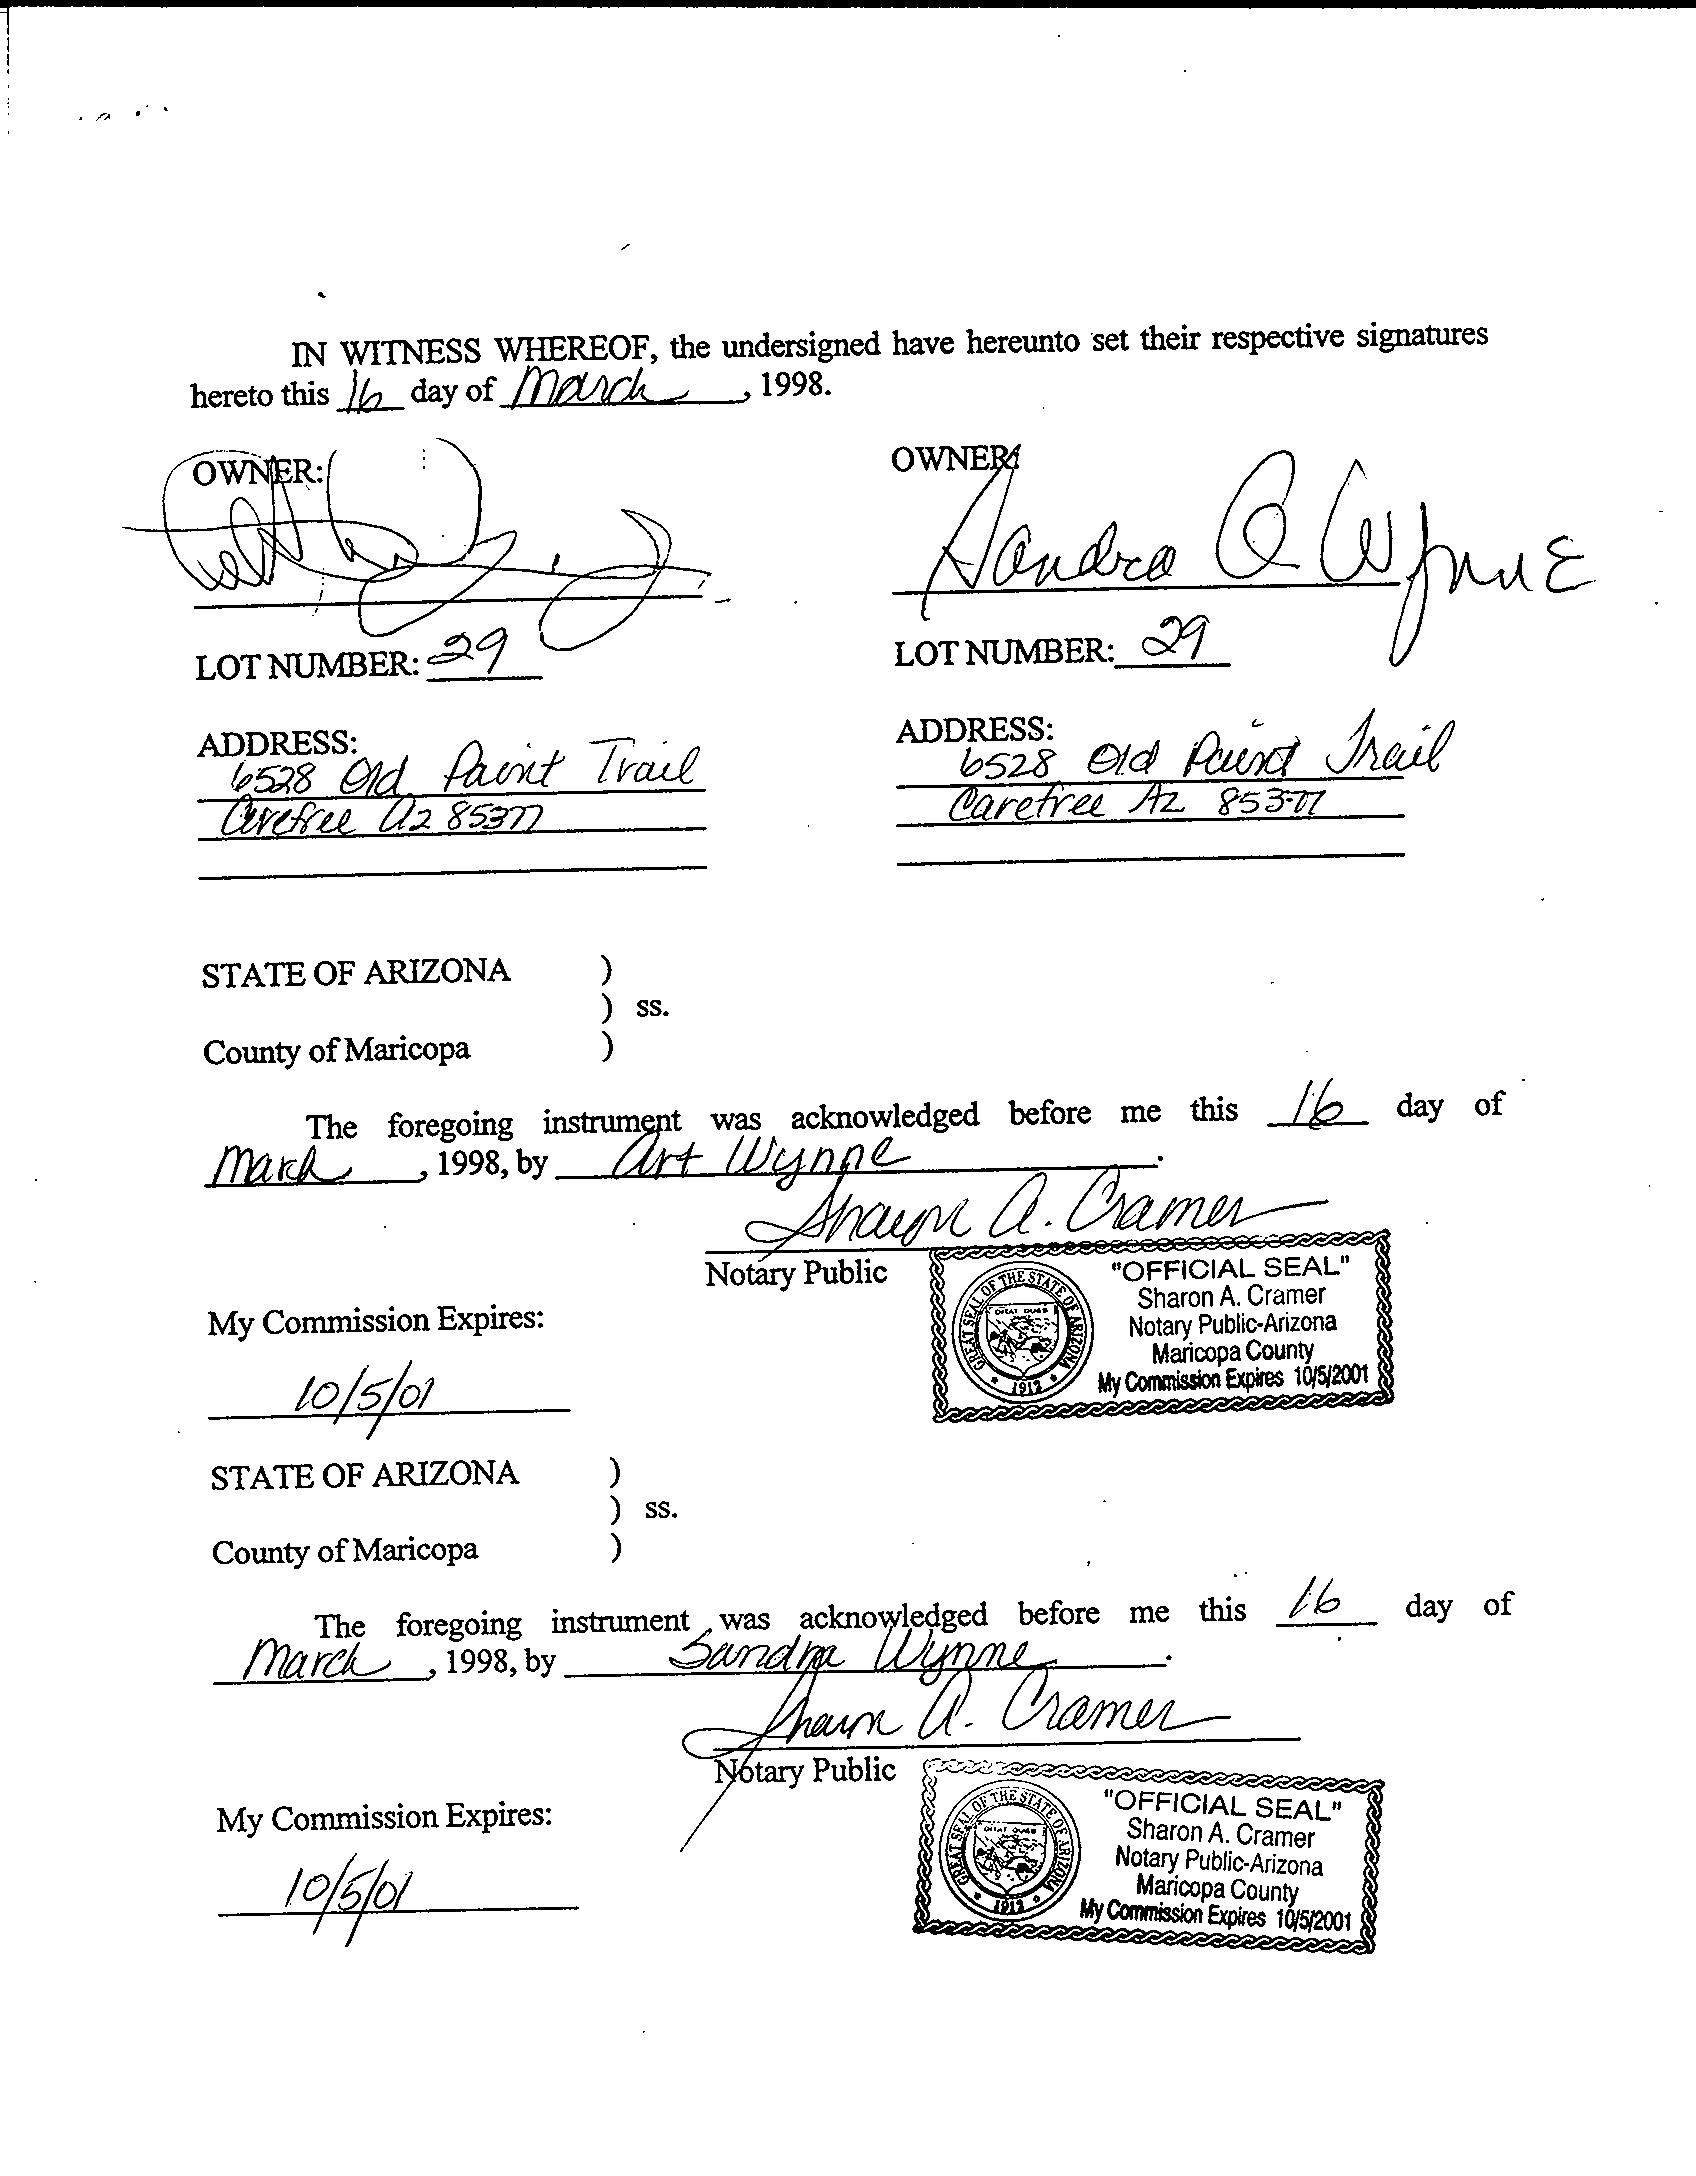 IN WITNESS WHEREOF, the undersigned have hereunto set their respective signatures
hereto this 16 day of March, 1998.
OWNER:
LOT NUMBER: 29
ADDRESS:
6528 Old Paint Trail
Carefree Az 85377
OWNER:
Sandra A Wynne
LOT NUMBER: 29
ADDRESS:
6528 Old Paint Trail
Carefree AZ 85377
STATE OF ARIZONA )
) ss.
County of Maricopa )
The foregoing instrument was acknowledged before me this 16 day of
March, 1998, by Art Wynne.
Sharon A. Cramer
Notary Public
"OFFICIAL SEAL"
Sharon A. Cramer
Notary Public-Arizona
Maricopa County
My Commission Expires 10/5/2001
GREAT SEAL OF THE STATE OF ARIZONA
1912
My Commission Expires:
10/5/01
STATE OF ARIZONA )
) ss.
County of Maricopa )
The foregoing instrument was acknowledged before me this 16 day of
March, 1998, by Sandra Wynne.
Sharon A. Cramer
Notary Public
"OFFICIAL SEAL"
Sharon A. Cramer
Notary Public-Arizona
Maricopa County
My Commission Expires 10/5/2001
GREAT SEAL OF THE STATE OF ARIZONA
1912
My Commission Expires:
10/5/01